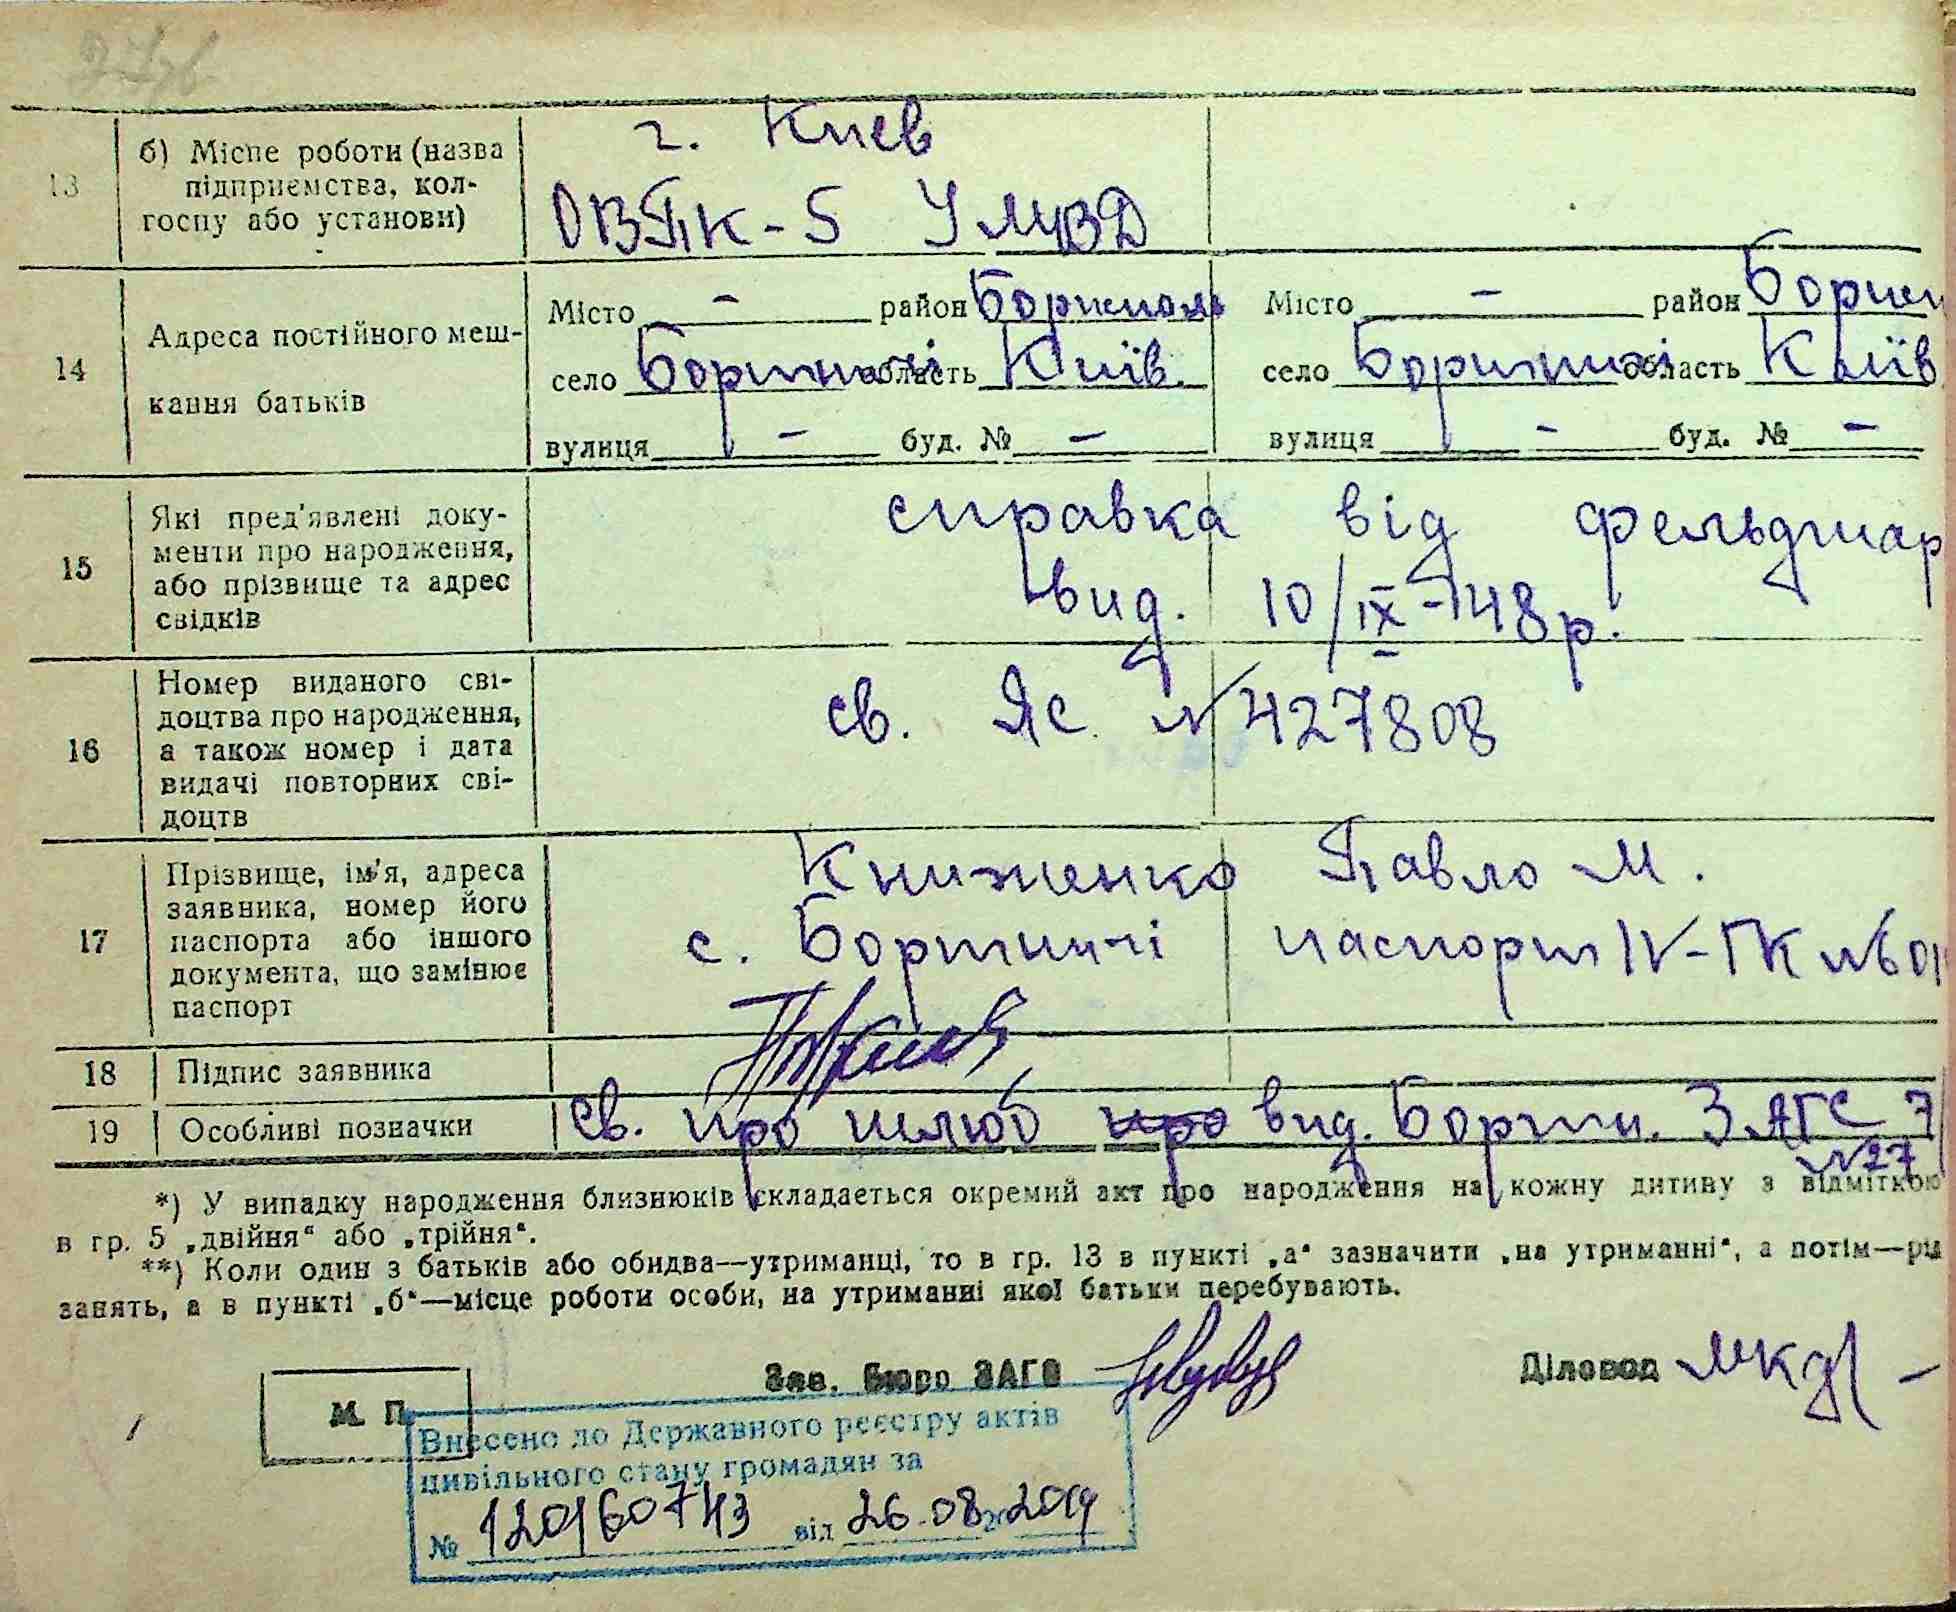 13 б) Місце роботи (назва г. Киев
підприємства, кол-
госпу або установи) ОВТК-5 УМВД
Місто - район Бориспол Місто - район Борисп
14 Адреса постійного меш-
село Бортничі область Київ. село Бортничі область Київ
кання батьків
вулиця - буд. № - вулиця - буд. № -
15 Які пред'явлені доку- справка від фельдшар
менти про народження,
або прізвище та адрес вид. 10/ІХ-148р.
свідків
16 Номер виданого сві-
доцтва про народження, св. Яс. № 427808
а також номер і дата
видачі повторних сві-
доцтв
17 Прізвище, ім'я, адреса Книженко Павло М.
заявника, номер його
паспорта або іншого с. Бортничі паспорт IV-ГК №601
документа, що замінює
паспорт
18 Підпис заявника
19 Особливі позначки Св. про шлюб про вид. Бортн. ЗАГС 7
№27
*) У випадку народження близнюків складається окремий акт про народження на кожну дитину з відміткою
в гр. 5 „двійня“ або „трійня“.
**) Коли один з батьків або обидва—утриманці, то в гр. 13 в пункті „а“ зазначити „на утриманні“, а потім—рід
занять, а в пункті „б“—місце роботи особи, на утриманні якої батьки перебувають.
Зав. Бюро ЗАГС Діловод
М. П.
Внесено до Державного реєстру актів
цивільного стану громадян за
№ 120160743 від 26.08.2019